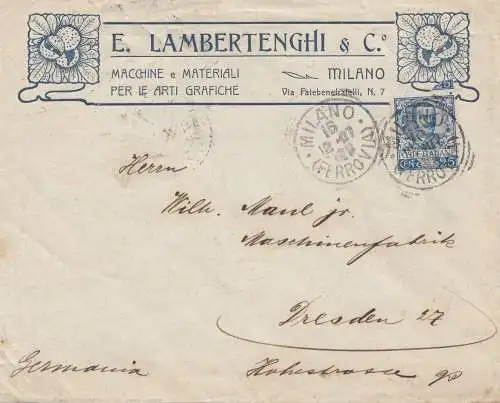 E. LAMBERTENGHI & C.º
MACCHINE e MATERIALI
PER LE ARTI GRAFICHE
MILANO
Via Fatebenefratelli, N. 7
MILANO
(FERROVIA)
POSTE ITALIANE
CENT. 25
Herrn
Wilh. Maul jr.
Maschinenfabrik
Dresden 27
Germania
Hohestrasse